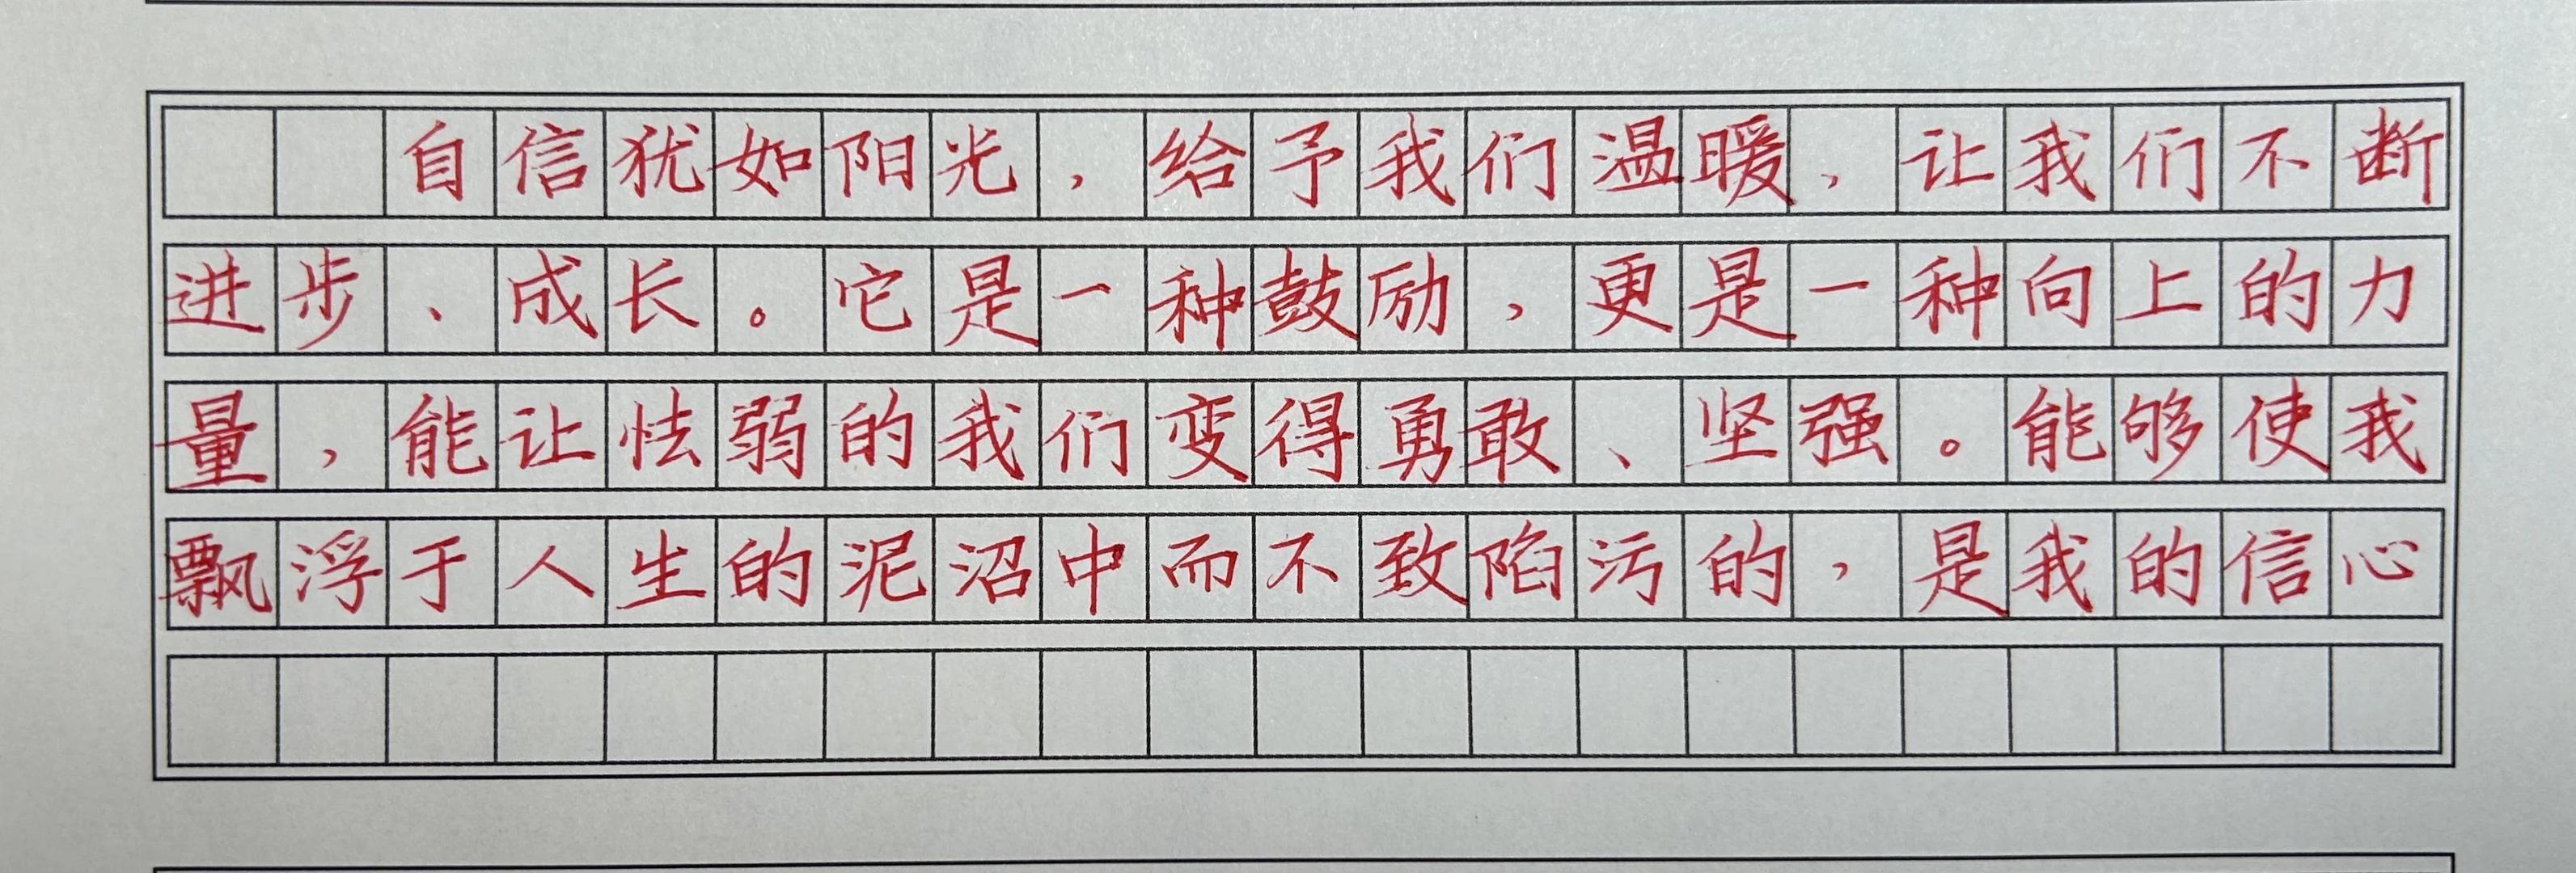 自信犹如阳光，给予我们温暖，让我们不断
进步、成长。它是一种鼓励，更是一种向上的力
量，能让怯弱的我们变得勇敢、坚强。能够使我
飘浮于人生的泥沼中而不致陷污的，是我的信心